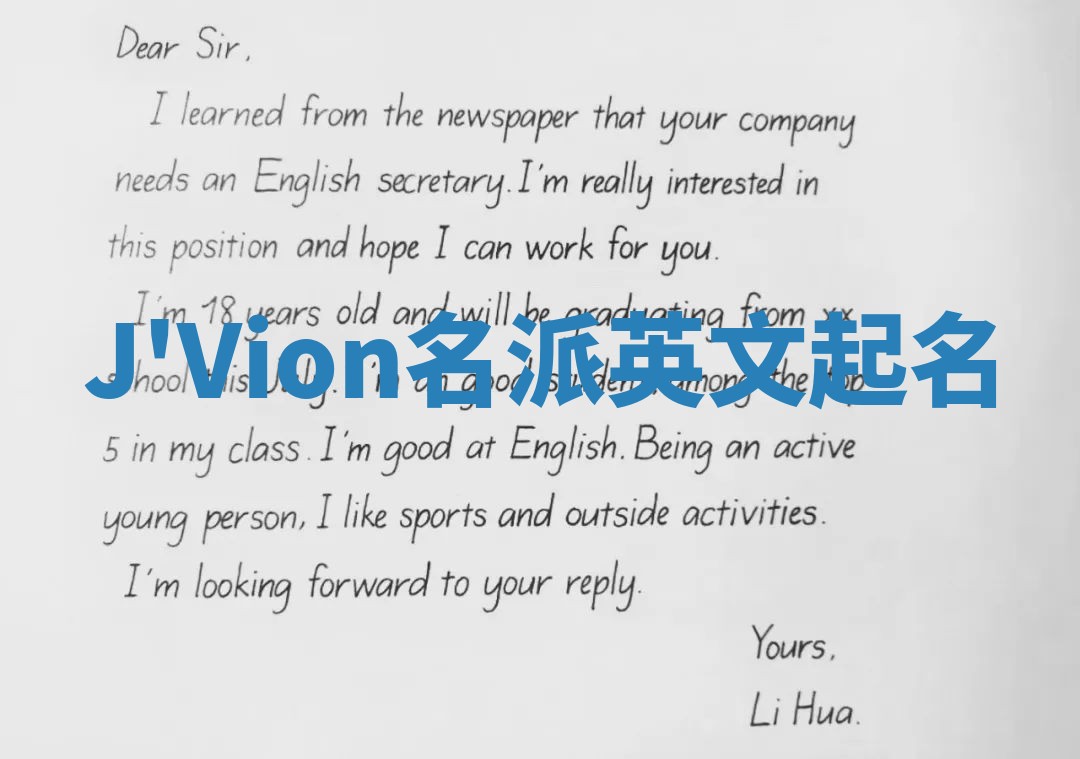 Dear Sir,
I learned from the newspaper that your company
needs an English secretary. I'm really interested in
this position and hope I can work for you.
I'm 18 years old and will be graduating from xx
J'Vion名派英文起名
school this July. I'm an good student, among the top
5 in my class. I'm good at English. Being an active
young person, I like sports and outside activities.
I'm looking forward to your reply.
Yours,
Li Hua.